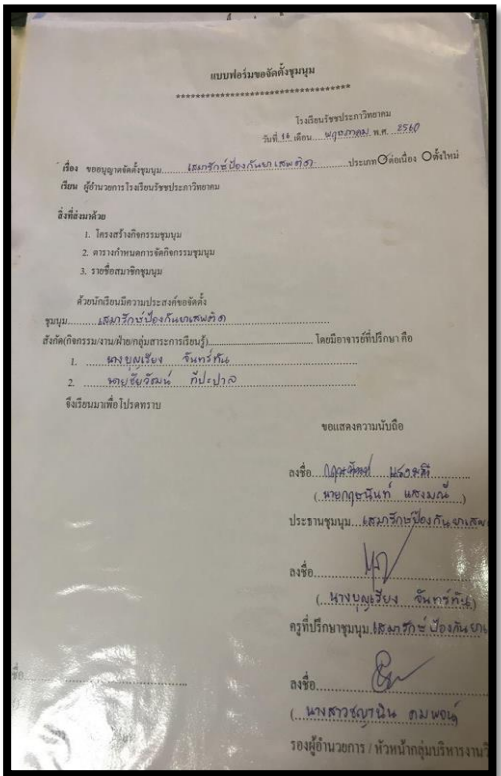 แบบฟอร์มขอจัดตั้งชุมนุม
************************************
โรงเรียนรัชชประภาวิทยาคม
วันที่ 16 เดือน พฤษภาคม พ.ศ. 2560
เรื่อง ขออนุญาตจัดตั้งชุมนุม เสมารักษ์ป้องกันยาเสพติด ประเภท ต่อเนื่อง ตั้งใหม่
เรียน ผู้อำนวยการโรงเรียนรัชชประภาวิทยาคม
สิ่งที่ส่งมาด้วย
1. โครงสร้างกิจกรรมชุมนุม
2. ตารางกำหนดการจัดกิจกรรมชุมนุม
3. รายชื่อสมาชิกชุมนุม
ด้วยนักเรียนมีความประสงค์ขอจัดตั้ง
ชุมนุม เสมารักษ์ป้องกันยาเสพติด
สังกัด(กิจกรรม/งาน/ฝ่าย/กลุ่มสาระการเรียนรู้) โดยมีอาจารย์ที่ปรึกษา คือ
1. นางบุญเรียง จันทร์ทัน
2. นายชัยวัฒน์ ทีปะปาล
จึงเรียนมาเพื่อโปรดทราบ
ขอแสดงความนับถือ
ลงชื่อ
(นายกฤษนันท์ แสงมณี)
ประธานชุมนุม เสมารักษ์ป้องกันยาเสพ
ลงชื่อ
(นางบุญเรียง จันทร์ทัน)
ครูที่ปรึกษาชุมนุม เสมารักษ์ป้องกันยาเ
ชื่อ
ลงชื่อ
(นางสาวชญานิน คมพจน์)
รองผู้อำนวยการ / หัวหน้ากลุ่มบริหารงานวิ